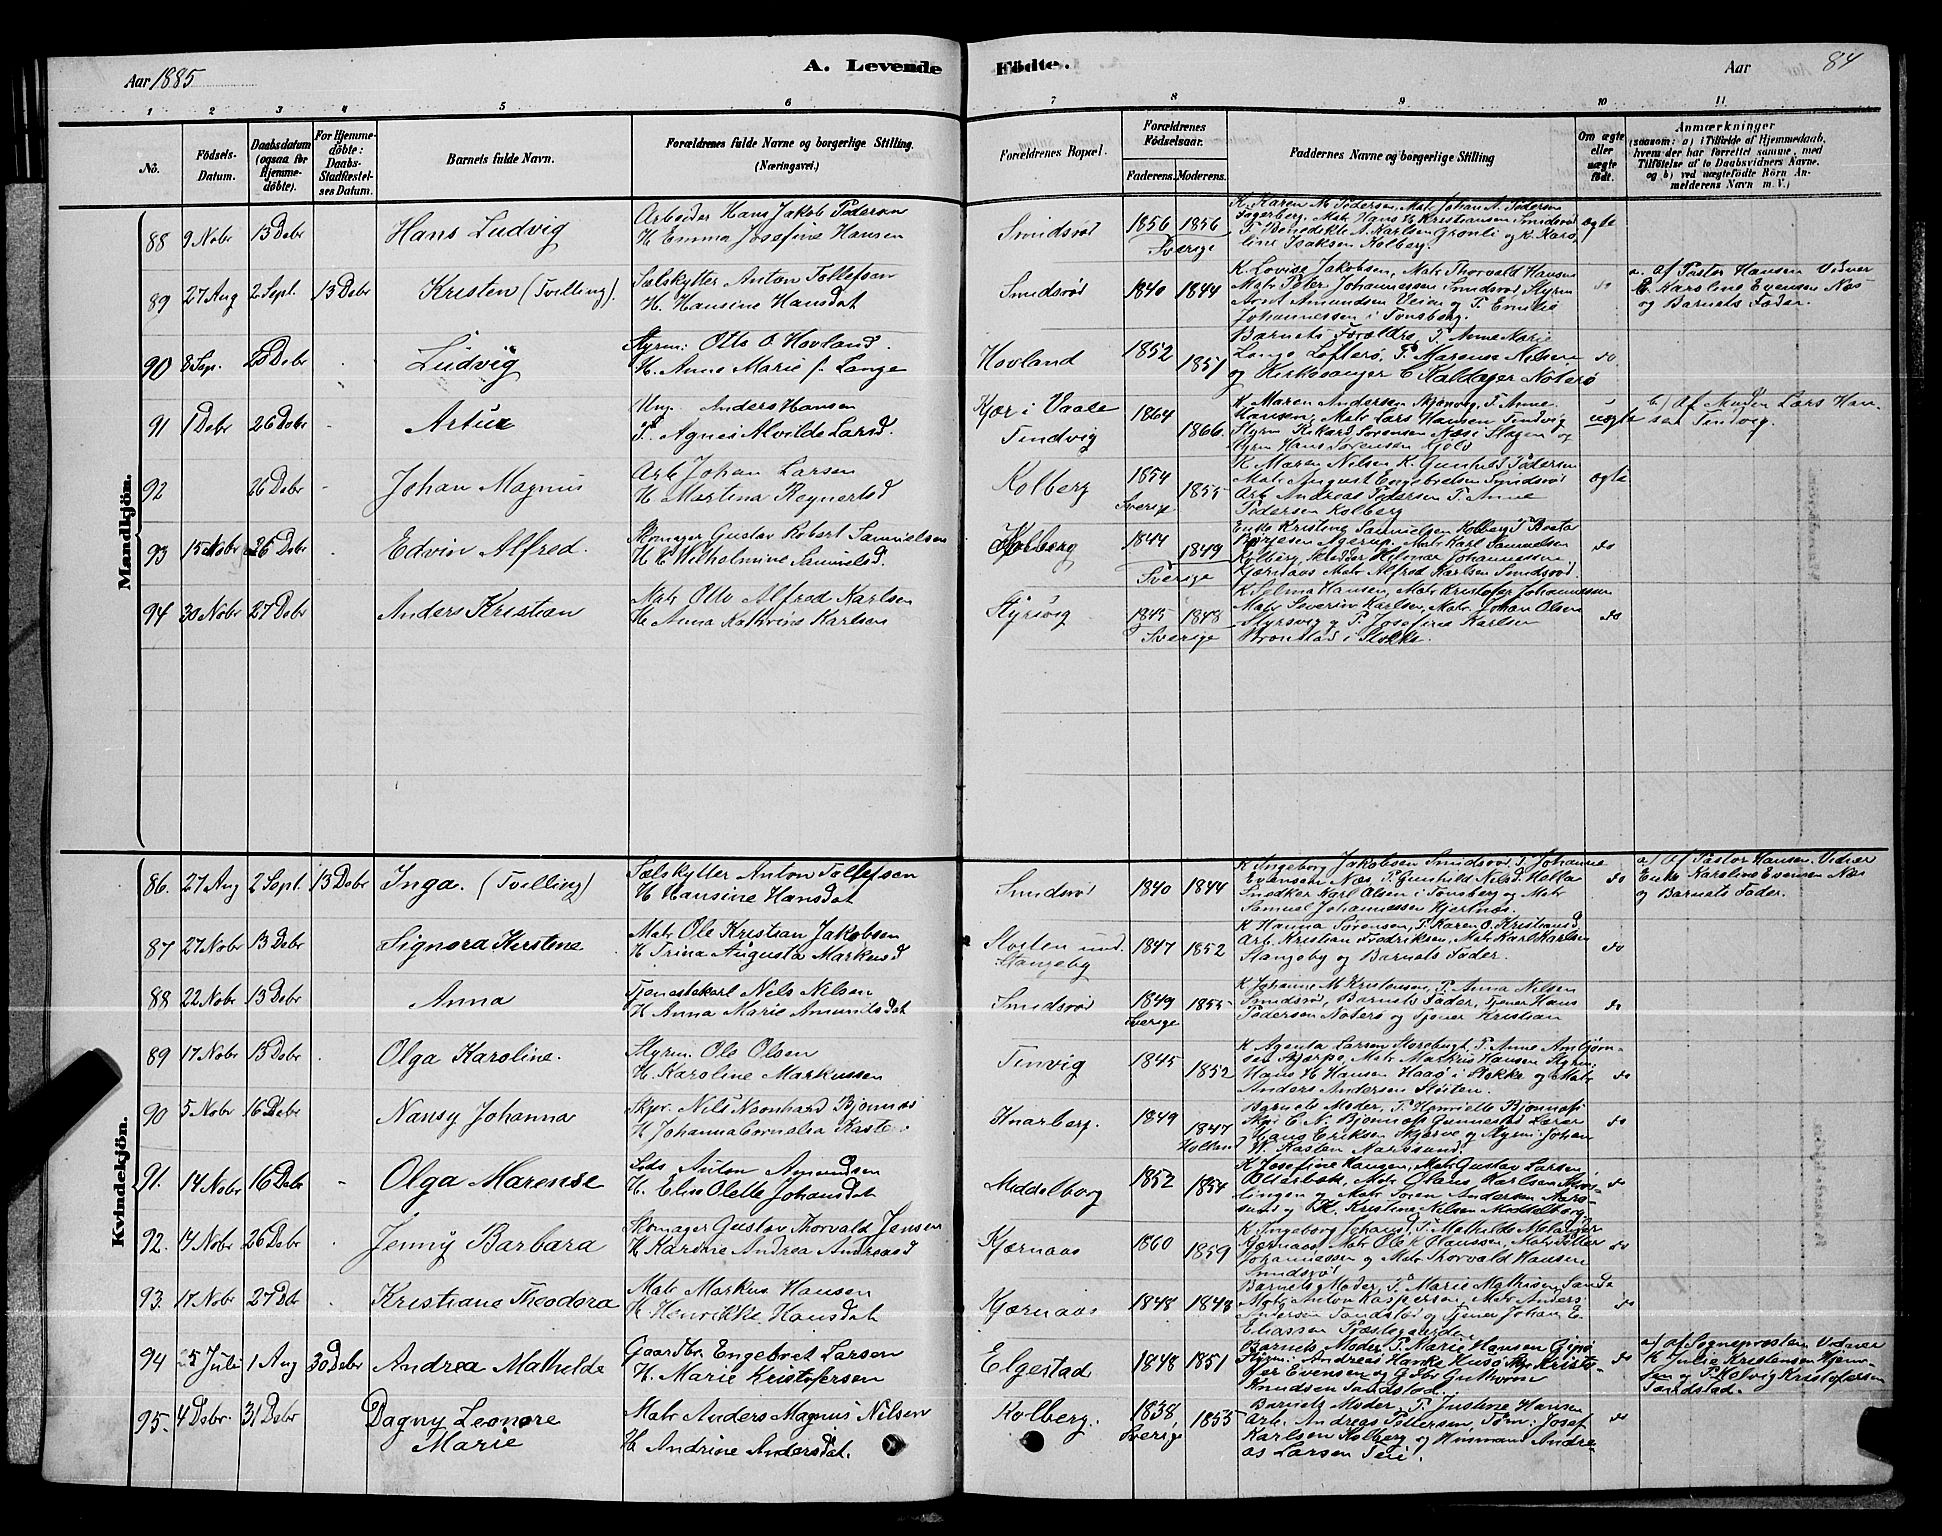 Aar 1885
A. Levende Fødte.
Aar
84
1 2 3 4 5 6 7 8 9 10 11
No.
Fødsels-
Datum.
Daabsdatum
(ogsaa for
Hjemme-
døbte).
For Hjemme-
døbte:
Daabs-
Stadfæstel-
ses Datum.
Barnets fulde Navn.
Forældrenes fulde Navne og borgerlige Stilling.
(Næringsvei.)
Forældrenes Bopæl.
Forældrenes
Fødselsaar.
Faderens. Moderens.
Faddernes Navne og borgerlige Stilling
Om ægte
eller
uægte
født.
Anmærkninger
(saasom: a) i Tilfælde af Hjemmedaab,
hvem der har forrettet samme, med
Tilføielse af to Daabsvidners Navne.
og b) ved uægtefødte Børn An-
melderens Navn m. V.)
Mandkjøn.
88 9 Nobr 13 Debr Hans Ludvig
Arbeider Hans Jakob Pedersen
H. Emma Josefine Hansen
Smidsrød 1856 1856
Sverige
K. Karen M. Pedersen, Matr. Johan A. Pedersen
Fagerberg, Matr. Hans H. Kristiansen Smidsrød
P. Benedikte A. Karlsen Grønli og K. Karo-
line Isaksen Kolberg.
ægte
89 27 Aug 2 Sept. 13 Debr Kristen (Tvilling)
Sælskytter Anton Tollefsen
H. Hansine Hansdat
Smidsrød 1840 1844
K. Lovise Jakobsen, Matr. Thorvald Hansen
Matr. Peter Johannessen Smidsrød, Styrm
Arnt Amundsen Veien og P. Emilie
Johannessen i Tønsberg.
do
a. af Pastor Hansen Vidner
E. Karoline Evensen Næs
og Barnets Fader.
90 8 Sep. 20 Debr - Ludvig
Styrm: Otto O. Hovland.
H. Anne Marie f. Lange
Hovland 1852 1851
Barnets Forældre, P. Anne Marie
Lange Lofterø, P. Marense Nilsen
og Kirkesanger C Kaldager Nøterø
do
91 1 Debr 26 Debr - Artur
Ung. Anders Hansen
P. Agnes Alvilde Larsd.
Kjær i Vaale
Tindvig
1864 1866
K. Maren Andersen Skjønvig, P. Anne
Hansen, Matr. Lars Hansen Tindvig
Styrm Rikard Sørensen Næs i Slagen og
Styrm Hans Sørensen Kjøld
uægte
b) af Anden Lars Han-
sen Tindvig.
92 26 Debr - Johan Magnus
Arb. Johan Larsen
H. Martina Reynertsd
Kolberg 1854 1855
Sverige
K Maren Nilsen K. Gunhild Pedersen
Matr August Engebretsen Smidsrød
Arb. Andreas Pedersen P. Anne
Pedersen Kolberg
ægte
93 15 Nobr 26 Debr . Edvin Alfred.
Skomager Gustav Robert Samuelsen
H. E Wilhelmine Samuelsd.
Kolberg 1844 1849
Sverige
Enke Kristine Samuelsen Kolberg P. Beata
Børjesen Agerup. Matr. Karl Samuelsen
Kolberg, Skrædder Hilmar Johannessen
Kjærnaas Matr Alfred Karlsen Smidsrød.
do
94 30 Nobr 27 Debr Anders Kristian
Matr Otto Alfred Karlsen
H. Anna Kathrine Karlsen
Styrsvig 1845 1848
Sverige
K. Selma Hansen, Matr. Kristofer Johannessen
Matr Severin Karlsen, Matr. Johan Olsen
Styrsvig og P. Josefine Karlsen
Brønstad i Stokke.
do
Kvindekjøn.
86. 27 Aug 2 Sept. 13 Debr Inga. (Tvilling)
Sælskytter Anton Tollefsen
H Hansine Hansdat
Smidsrød 1840 1844
K Ingeborg Jakobsen Smidsrød, P. Johanne
Evensen Næs P. Gunhild Nilsd. Holla
Snedker Karl Olsen i Tønsberg og Matr
Samuel Johannessen Hjertnæs.
do
a) af Pastor Hansen. Vidner
Enke Karoline Evensen Næs
og Barnets Fader.
87 27 Nobr 13 Debr Signora Kirstine
Matr. Ole Kristian Jakobsen
H. Trina Augusta Markusd
Skoten und.
Stangeby
1847 1852
K Hanna Sørensen, P. Karen O. Kristiansd
Arb. Kristian Fredriksen, Matr. Karl Karlsen
Stangeby og Barnets Fader.
do
88 22 Nobr 13 Debr Anna
Tjenestekarl Nils Nilsen
H Anna Marie Amundsdat
Smidsrød 1849 1855
Sverige
K. Johanne M. Kristensen, P. Anna Nilsen
Smidsrød, Barnets Fader, Tjener Hans
Pedersen Nøterø og Tjener Kristian
do
89 17 Nobr 13 Debr . Olga Karoline.
Styrm. Ole Olsen
H. Karoline Markussen
Tinvig 1845 1852
K Agenta Larsen Storebugt, P. Anne Anbjørn-
sen Skjerpe, Matr Markus Hansen Styrm
Hans H. Hansen Haaø i Stokke og Matr
Anders Andersen Skoten.
do
90 5 Nobr 16 Debr Nansy Johanna
Skpr. Nils Noonhard Bjønnæs
H Johanna Cornelia Kasten
Knarberg. 1849 1847
Barnets Moder, P. Henriette Bjønnæs
Skpr C. N. Bjønnæs Gunnestad Lærer
Hans Eriksen Skjerve og Styrm: Johan
W. Kasten Narssund.
do
91. 14 Nobr 16 Debr - Olga Marense
Lods Anton Amundsen
H. Elen Olette Johansdat
Meddelborg 1852 1854
K Josefine Hansen, Matr Gustav Larsen
Ollerbak, Matr Olaus Karlsen
og Matr Søren Andersen
og K. Kristine Nilsen Meddelborg.
do
92. 14 Nobr 26 Debr . Jenny Barbara
Skomager Gustav Thorvald Jensen
H Karine Andrea Andreasd
Kjærnaas 1860 1859
K. Ingeborg Johansd, P. Mathilde
Kjærnaas, Matr Ole K Hanssen, Matr Petter
Johannessen og Matr Thorvald Hansen
Smidsrød
do
93. 17 Nobr 27 Debr . Kristiane Theodora
Matr Markus Hansen
H Henrikke Hansdat
Kjærnaas 1848 1848
Barnets Moder, P. Marie Mathisen, Sande
Matr Anton Kaspersen, Matr Anders
Andersen og Tjener Johan E.
Eliassen Præstegaarden
do
94 25 Juli 1 Aug 30 Debr Andrea Mathilde
Gaardbr. Engebret Larsen
H. Marie Kristofersen
Elgestad 1848 1851
Barnets Moder, P. Marie Hansen Gipø
Styrm: Andreas Hanke Husø Skp Kristo-
fer Evensen og G.br Guthorm
Knudsen Sandstad.
do
a) af Sogneprosten Vidner
K Julie Kristensen Hjem-
sen og P. Helvig Kristofersen
Sandstad.
95. 4 Debr. 31 Debr Dagny Leonore
Marie
Matr Anders Magnus Nilsen
H. Andrine Andersdat.
Kolberg. 1838 1855
Sverige
Barnets Moder, P. Justine Hansen
Arb. Andreas Pettersen, Tøm: Josef
Karlsen Kolberg og Husmand Andre-
as Larsen Teie.
do